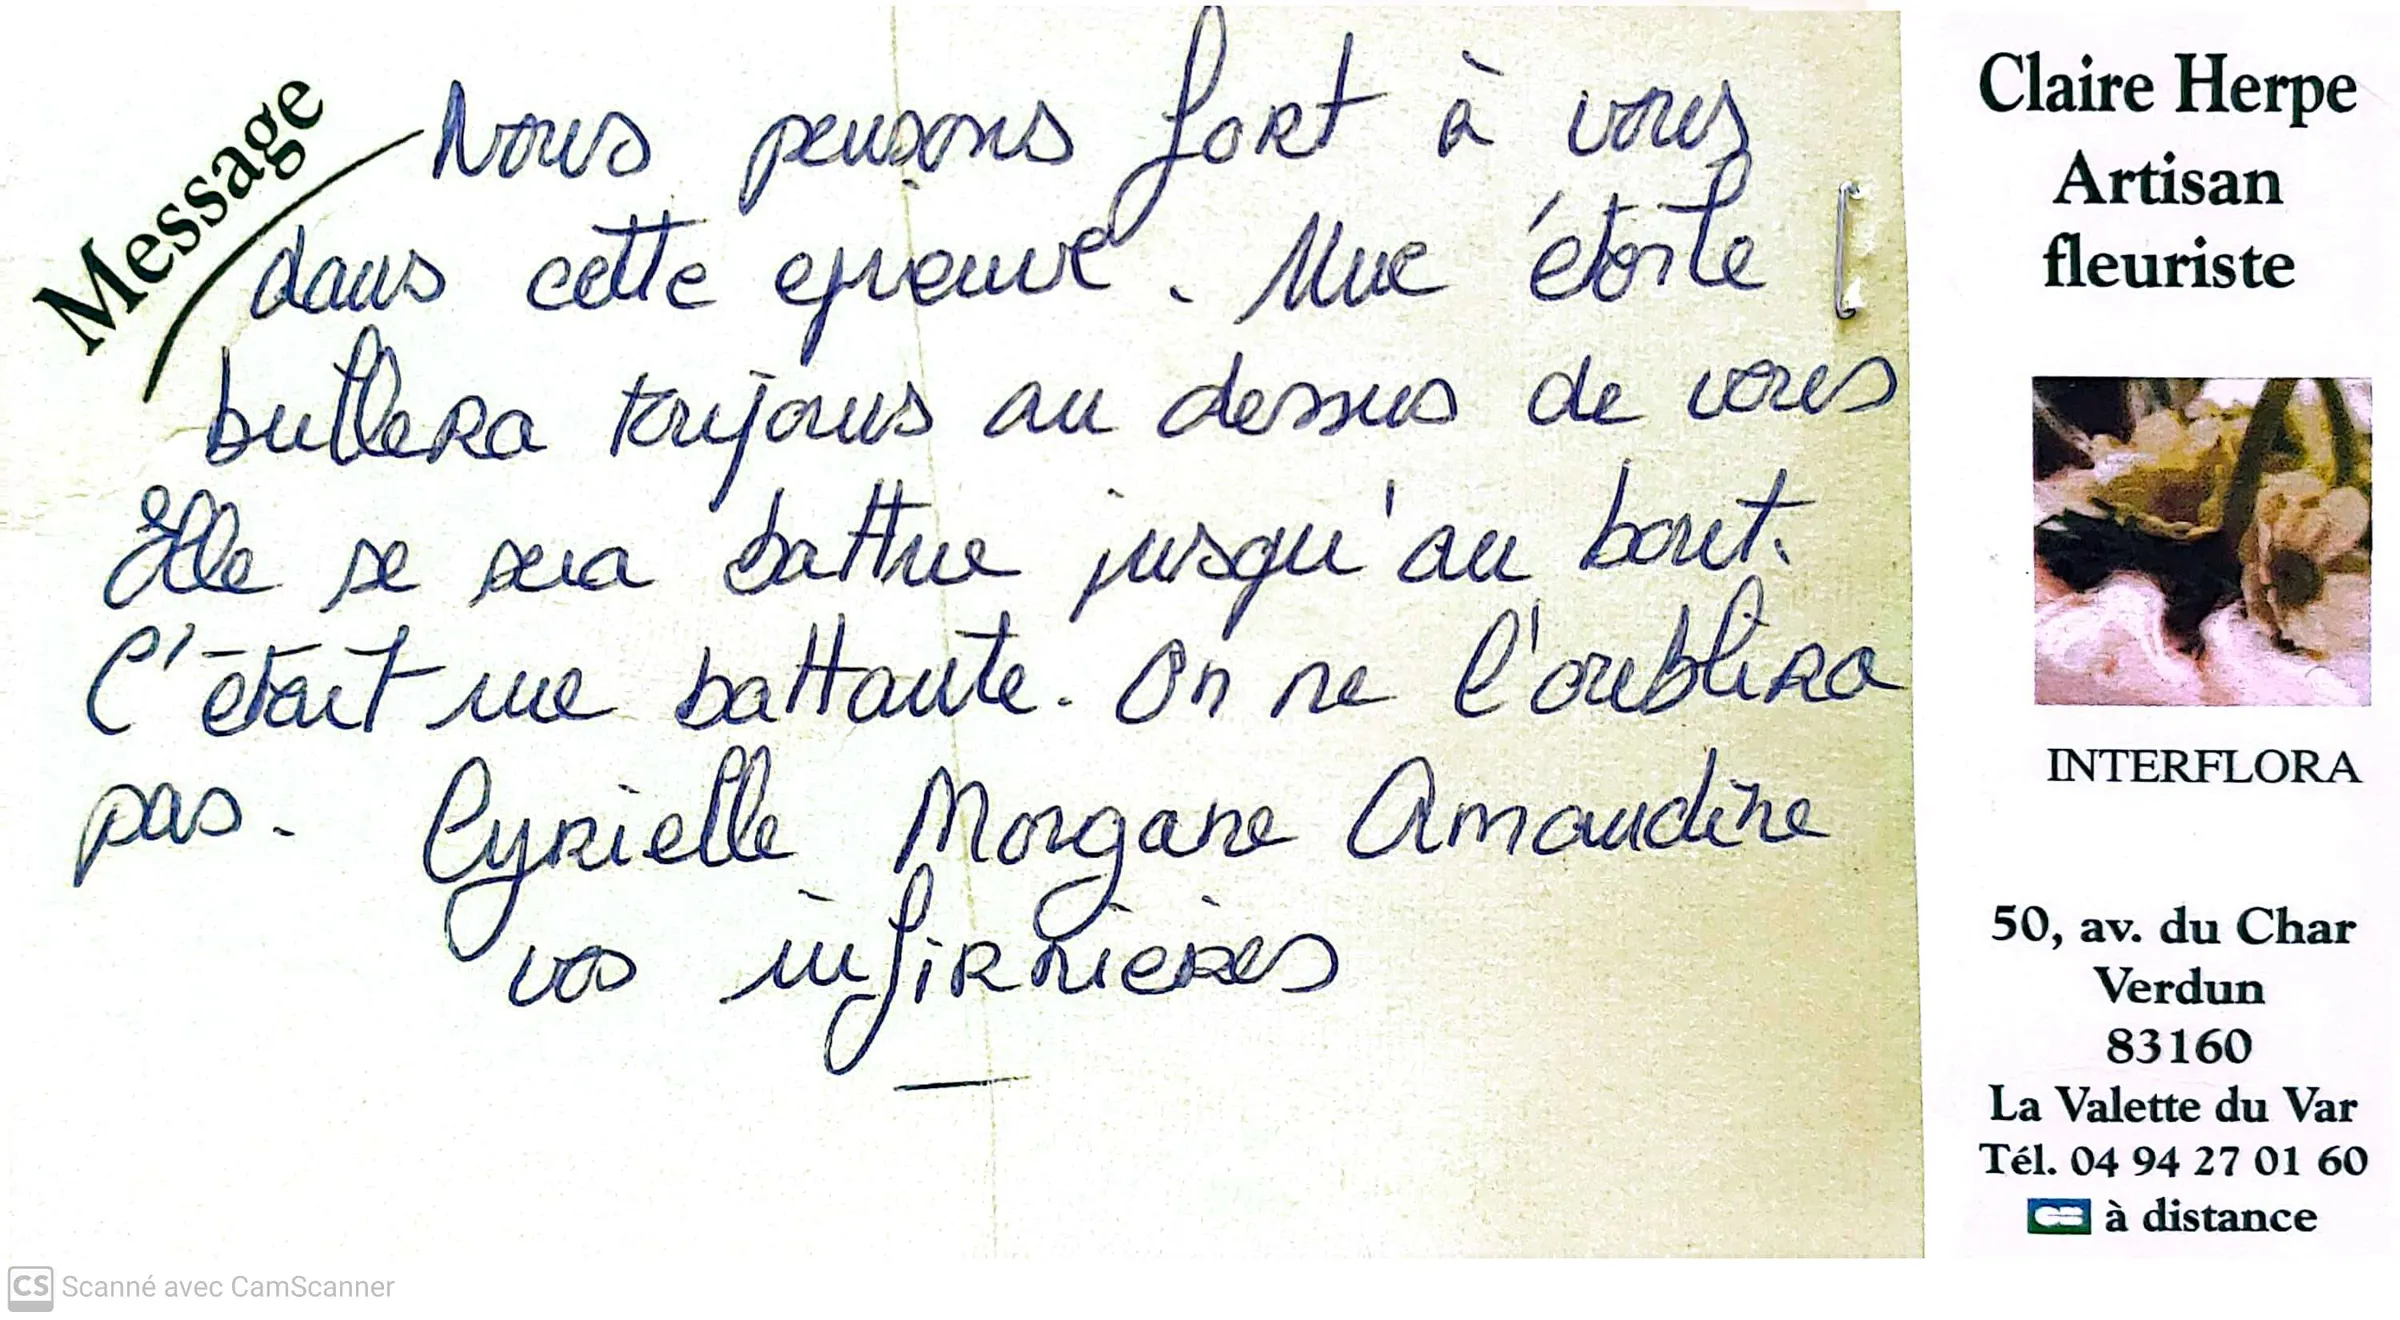 Message
Nous pensons fort à vous
dans cette epreuve. Une étoile
brillera toujours au dessus de vous
Elle se sera battue jusqu'au bout.
C'était une battante. On ne l'oubliera
pas. Cyrielle Morgane Amandine
vos infirmières
Claire Herpe
Artisan
fleuriste
INTERFLORA
50, av. du Char
Verdun
83160
La Valette du Var
Tél. 04 94 27 01 60
CB à distance
CS Scanné avec CamScanner